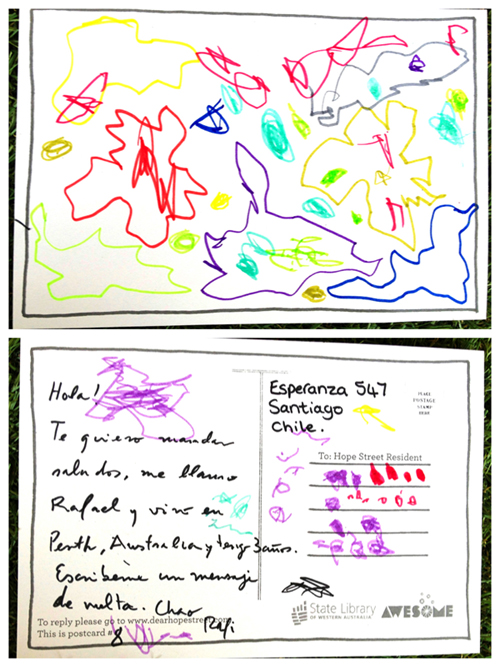 Hola!
Te quiero mandar
saludos, me llamo
Rafael y vivo en
Perth, Australia y tengo 3 años.
Escribeme un mensaje
de vuelta. Chao
Rafi
To reply please go to www.dearhopestreet.com
This is postcard # 8
Esperanza 547
Santiago
Chile.
PLACE
POSTAGE
STAMP
HERE
To: Hope Street Resident
State Library
OF WESTERN AUSTRALIA
AWESOME